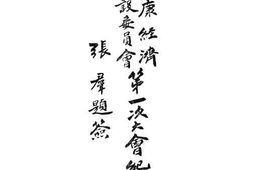 康經濟
設委員會第一次大會紀
張羣題簽